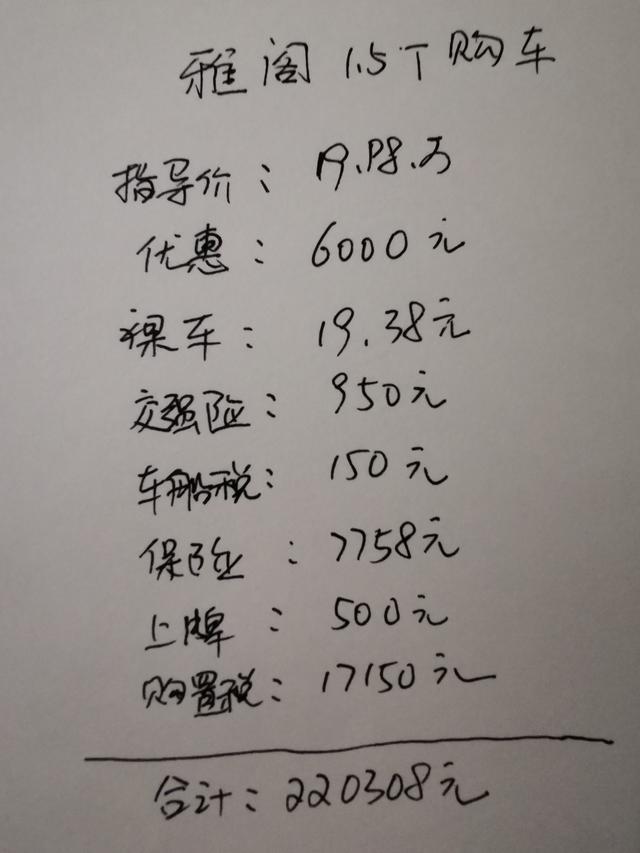 雅阁 1.5T 购车
指导价：19.98.万
优惠：6000元
裸车：19.38元
交强险：950元
车船税：150元
保险：7758元
上牌：500元
购置税：17150元
合计：220308元